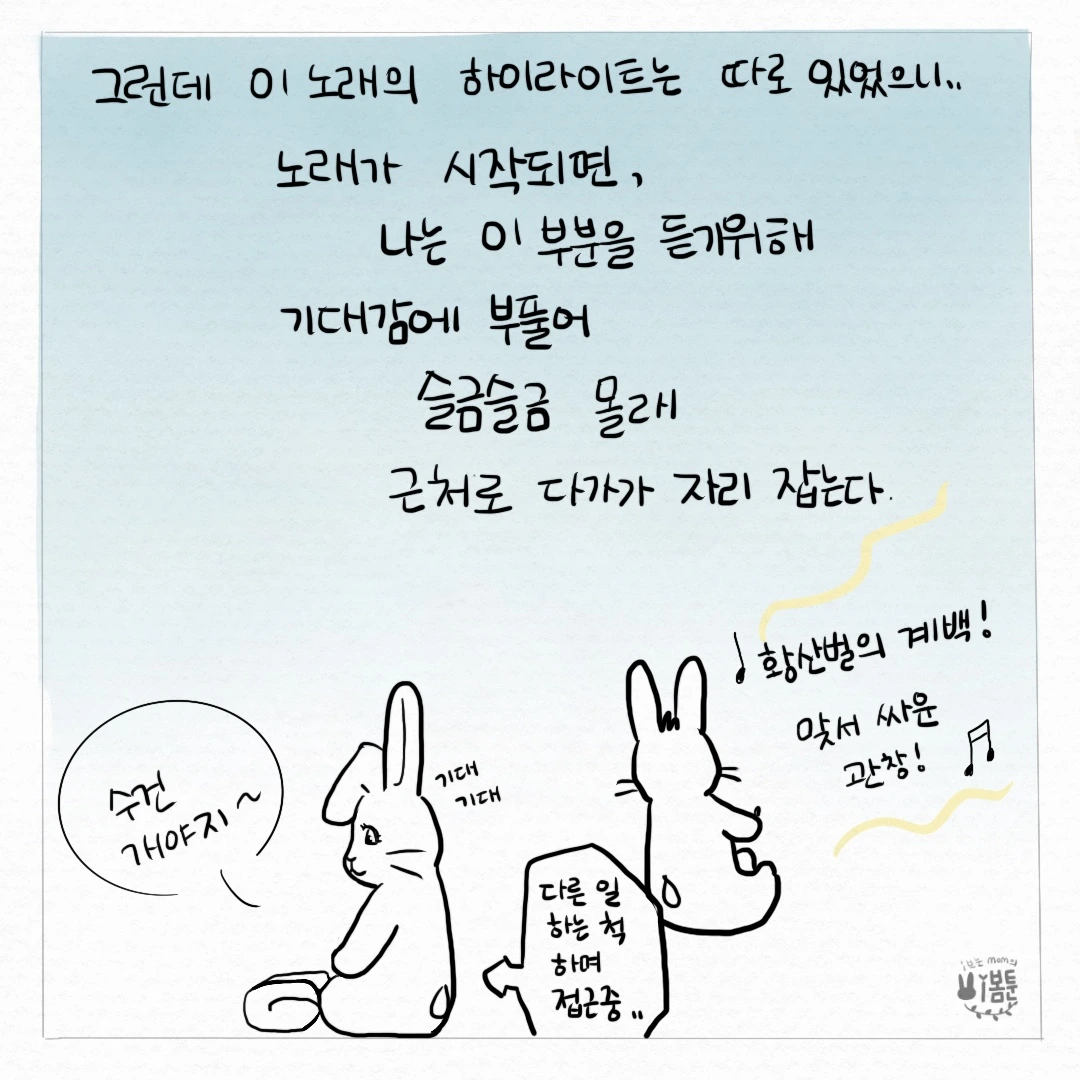 그런데 이 노래의 하이라이트는 따로 있었으니..
노래가 시작되면,
나는 이 부분을 듣기위해
기대감에 부풀어
슬금슬금 몰래
근처로 다가가 자리 잡는다.
♩ 황산벌의 계백!
맞서 싸운
관창! ♫
수건
개야지~
기대
기대
다른 일
하는 척
하며
접근중..
i보는 mom의
i봄툰